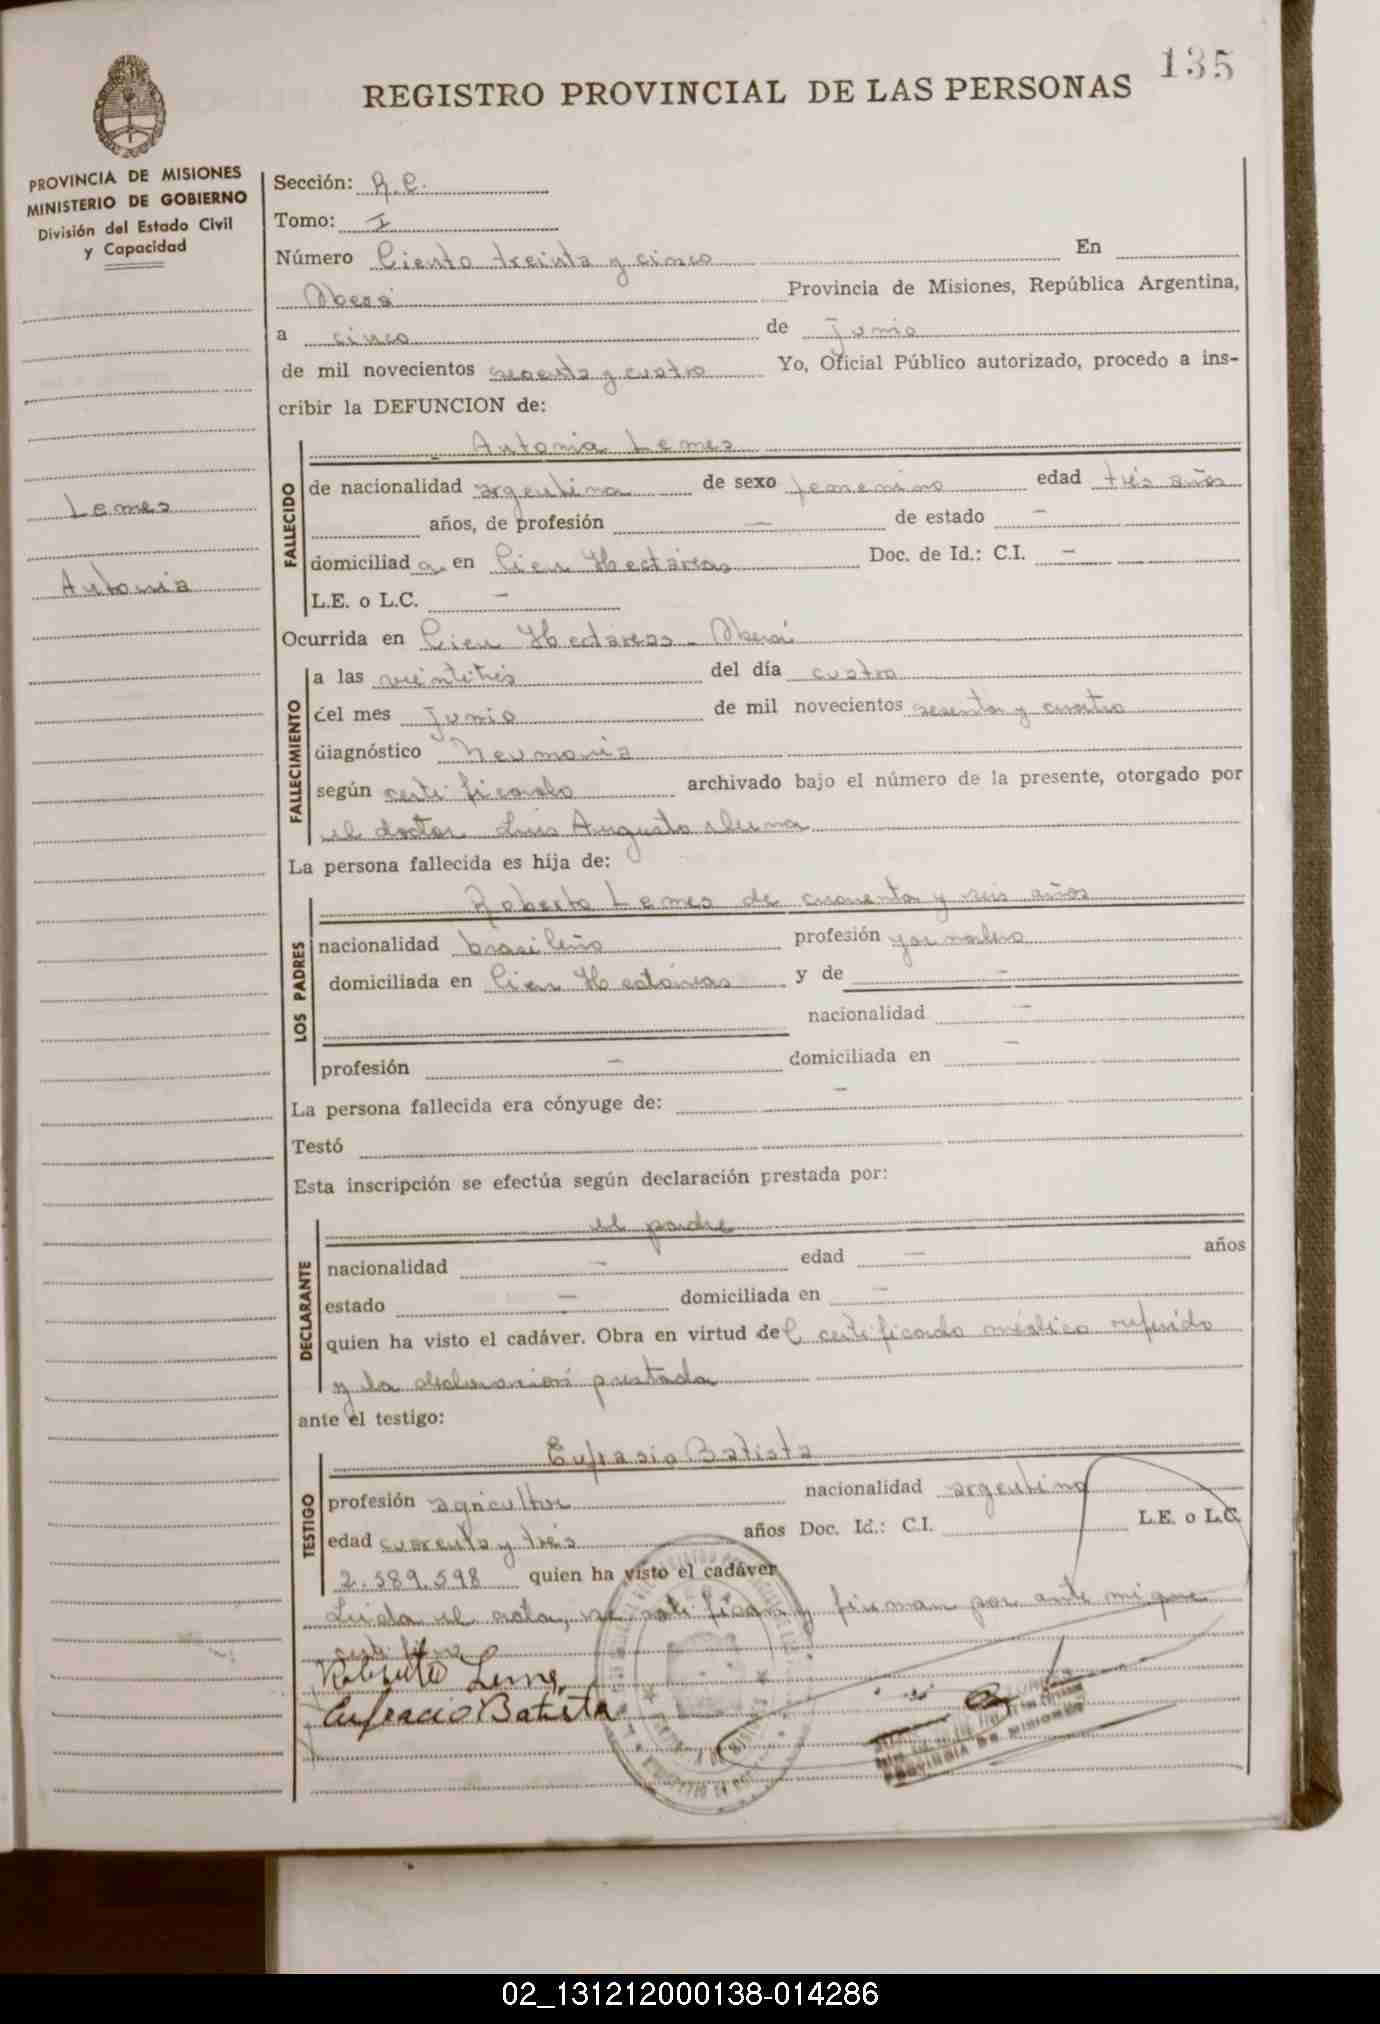 135
REGISTRO PROVINCIAL DE LAS PERSONAS
PROVINCIA DE MISIONES
MINISTERIO DE GOBIERNO
División del Estado Civil
y Capacidad
Lemes
Antonia
Sección: R.C.
Tomo: I
Número Ciento treinta y cinco En
Oberá Provincia de Misiones, República Argentina,
a cinco de Junio
de mil novecientos sesenta y cuatro Yo, Oficial Público autorizado, procedo a ins-
cribir la DEFUNCION de:
FALLECIDO
Antonia Lemes
de nacionalidad argentina de sexo femenino edad tres años
años, de profesión — de estado —
domiciliada en Cien Hectáreas Doc. de Id.: C.I. —
L.E. o L.C. —
Ocurrida en Cien Hectáreas - Oberá
FALLECIMIENTO
a las veintitrés del día cuatro
del mes Junio de mil novecientos sesenta y cuatro
diagnóstico Neumonia
según certificado archivado bajo el número de la presente, otorgado por
el doctor Luis Augusto
La persona fallecida es hija de:
LOS PADRES
Roberto Lemes de cuarenta y seis años
nacionalidad brasileño profesión jornalero
domiciliada en Cien Hectáreas y de —
nacionalidad —
profesión — domiciliada en —
La persona fallecida era cónyuge de: —
Testó
Esta inscripción se efectúa según declaración prestada por:
DECLARANTE
el padre
nacionalidad — edad — años
estado — domiciliada en —
quien ha visto el cadáver. Obra en virtud del certificado médico referido
y la declaración prestada
ante el testigo:
TESTIGO
Eufrasio Batista
profesión agricultor nacionalidad argentino
edad cuarenta y tres años Doc. Id.: C.I. L.E. o L.C.
2.589.598 quien ha visto el cadáver
Leida el acta, se ratifican y firman por ante mi que
certifico
Eufracio Batista
PROVINCIA DE MISIONES
02_131212000138-014286